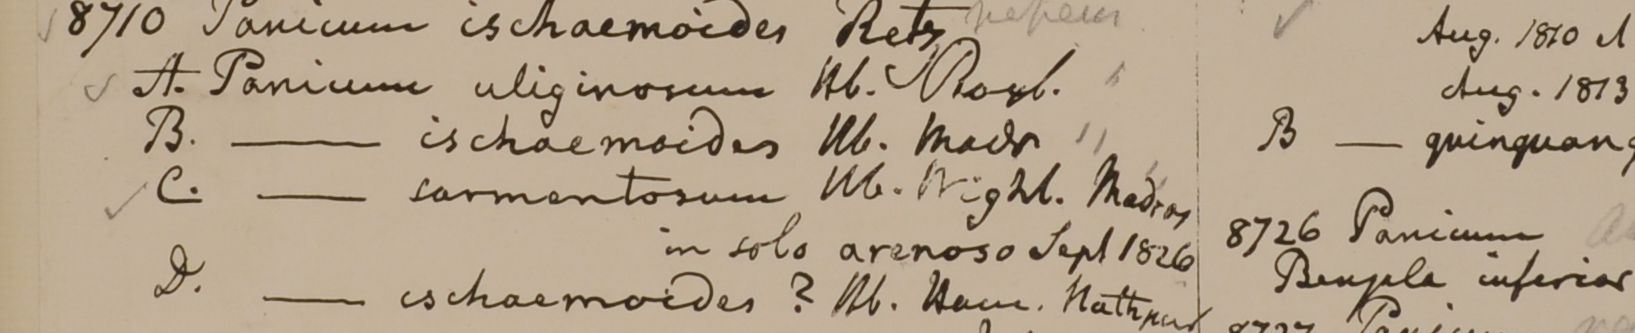 8710 Panicum ischaemoides Retz repens
A. Panicum uliginosum Hb. Roxb. "
B. —— ischaemoides Hb. Madr "
C. —— sarmentosum Hb. Wight. Madras
in solo arenoso Sept 1826
D. —— ischaemoides ? Hb. Ham. Nathpur
Aug. 1810
Aug. 1813
B —— quinquang
8726 Panicum
Bengela inferior
8727 Panicum